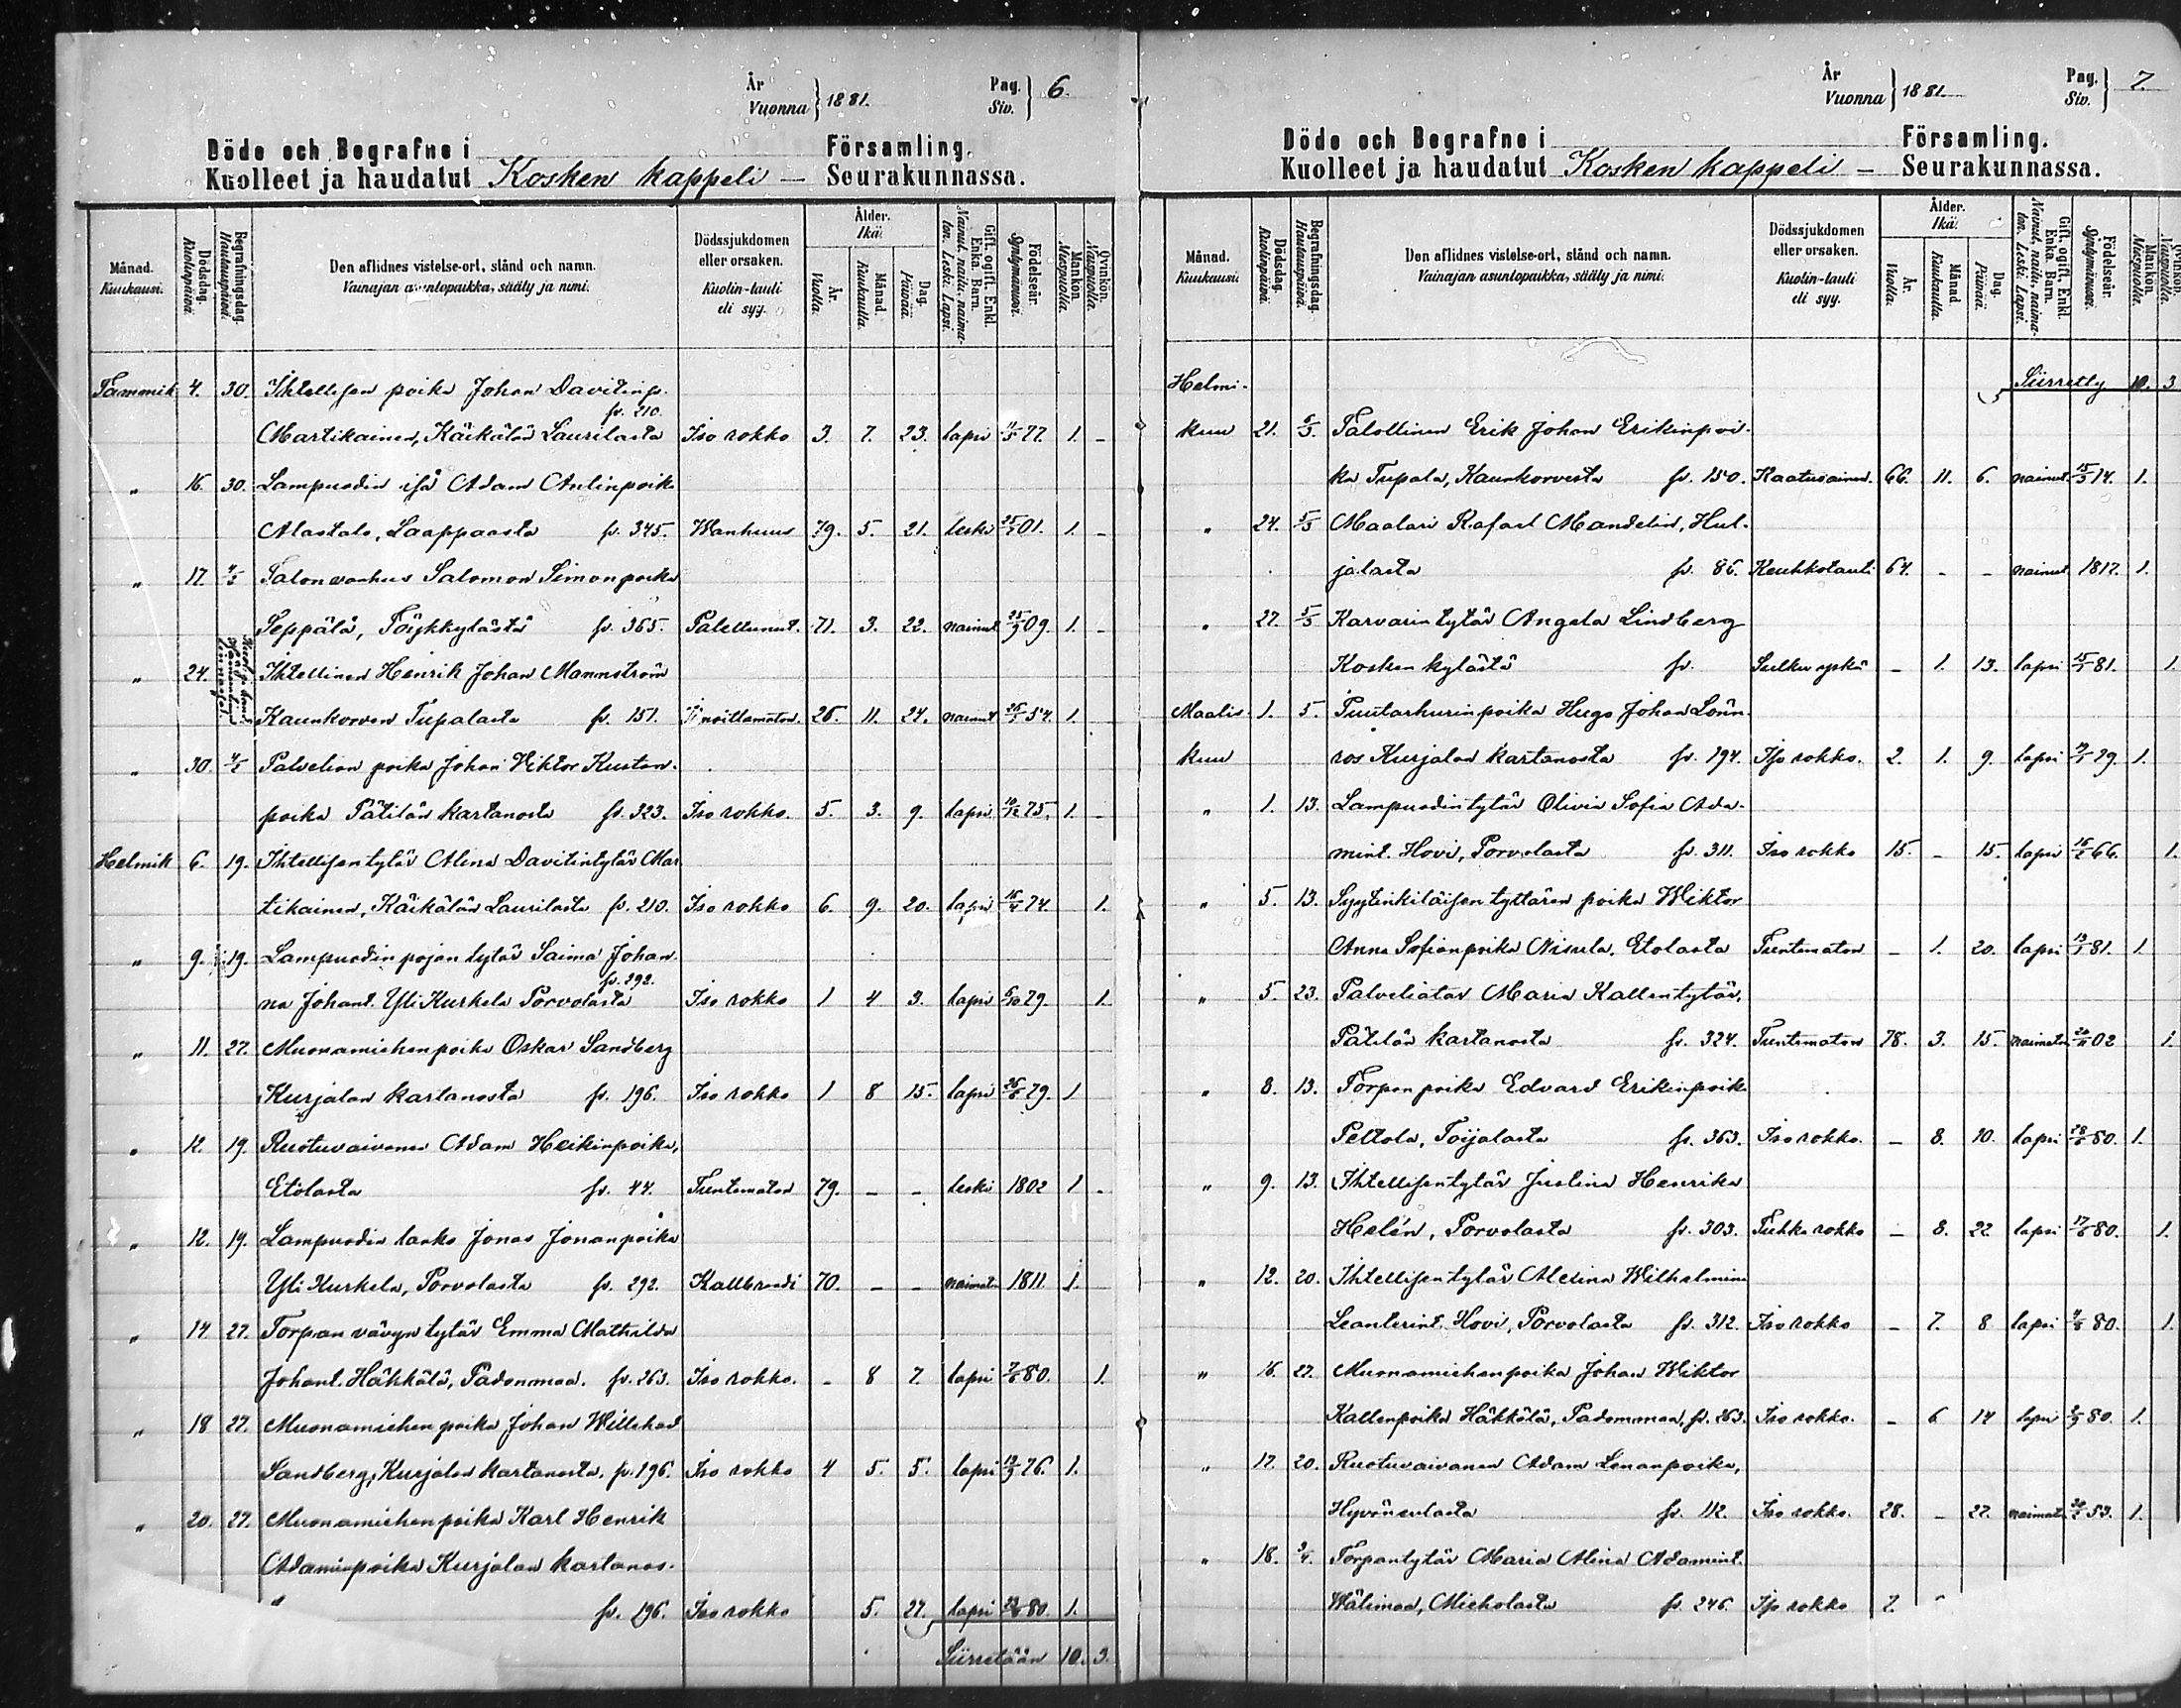 År
Vuonna } 1881.
Pag.
Siv. } 6.
Döde och Begrafne i Församling.
Kuolleet ja haudatut Kosken kappeli – Seurakunnassa.
Månad. Kuukausi.
Dödsdag. Kuolinpäivä.
Begrafningsdag. Hautauspäivä.
Den aflidnes vistelse-ort, stånd och namn.
Vainajan asuntopaikka, sääty ja nimi.
Dödssjukdomen eller orsaken.
Kuolin-tauti eli syy.
Ålder. Ikä.
År. Vuotta.
Månad. Kuukautta.
Dag. Päivää.
Gift, ogift. Enkl. Enka. Barn.
Nainut, naitu, naimaton. Leski. Lapsi.
Födelseår. Syntymävuosi.
Mankön. Miespuolia.
Qvinkön. Vaispuolia.
Tammik 4. 30. Ihtellisen poika Johan Davitinp.
fr. 210.
Martikainen, Käikälän Laurilasta Iso rokko 3. 7. 23. lapsi 77. 1. -
" 16. 30. Lampuodin isä Adam Antinpoika
Alastalo, Laappaasta fr. 345. Wanhuus 79. 5. 21. leski 01. 1. -
" 17. Talonvanhus Salomon Simonpoika
Seppälä, Töykkylästä fr. 365. Palellunut. 71. 3. 22. nainut 09. 1. -
" 24. Ihtellinen Henrik Johan Mannström
Kaunkorven Tupalasta fr. 151. 26. 11. 24. nainut 54. 1.
" 30. Palvelian poika Johan Viktor Kustan-
poika Pätilän kartanosta fr. 323. Iso rokko. 5. 3. 9. lapsi 75. 1. -
Helmik 6. 19. Ihtellisen tytär Alina Davitintytär Mar
tikainen, Käikälän Laurilasta fr. 210. Iso rokko 6. 9. 20. lapsi 16/4 74. 1.
" 9. 19. Lampuodin pojan tytär Saima Johan-
fr. 292.
na Johant. Yli Kurkela Porvolasta Iso rokko 1 4 3. lapsi 6/10 79. 1.
" 11. 27. Muonamiehen poika Oskar Sandberg
Kurjalan kartanosta fr. 196. Iso rokko 1 8 15. lapsi 26/5 79. 1
" 12. 19. Ruotuvaivanen Adam Heikinpoika,
Etolasta fr. 44. Tuntematon 79. - - leski 1802 1 -
" 12. 19. Lampuodin lanko Jonas Jonanpoika
Yli Kurkela, Porvolasta fr. 292. Kallbrandi 70. - - naimatn 1811. 1.
" 14 27. Torpan vävyn tytär Emma Mathilda
Johant. Häkkälä, Padonmaa. fr. 263. Iso rokko. - 8 7. lapsi 7/6 80. 1.
" 18 27. Muonamiehen poika Johan Willehad
Sandberg, Kurjalan kartanosta. fr. 196. Iso rokko 4 5. 5. lapsi 13/9 76. 1.
" 20. 27. Muonamiehen poika Karl Henrik
Adaminpoika Kurjalan kartanos-
fr. 196. Iso rokko 5. 27. lapsi 80. 1.
Siirretään 10. 3.
År
Vuonna } 1881.
Pag.
Siv. } 7.
Döde och Begrafne i Församling.
Kuolleet ja haudatut Kosken kappeli – Seurakunnassa.
Månad. Kuukausi.
Dödsdag. Kuolinpäivä.
Begrafningsdag. Hautauspäivä.
Den aflidnes vistelse-ort, stånd och namn.
Vainajan asuntopaikka, sääty ja nimi.
Dödssjukdomen eller orsaken.
Kuolin-tauti eli syy.
Ålder. Ikä.
År. Vuotta.
Månad. Kuukautta.
Dag. Päivää.
Gift, ogift. Enkl. Enka. Barn.
Nainut, naitu, naimaton. Leski. Lapsi.
Födelseår. Syntymävuosi.
Mankön. Miespuolia.
Helmi- Siirretty 10. 3
kuu 21. 6/3. Talollinen Erik Johan Erikinpoi-
ka Tupala, Kaunkorvesta fr. 150. Kaatuvainen. 66. 11. 6. nainut 15/3 14. 1.
" 24. 5/3 Maalari Rafael Mandelin, Hul-
jalasta fr. 86. Keuhkotauti 64. - - nainut 1817. 1.
" 27. 5/3 Karvarin tytär Angela Lindberg
Kosken kylästä fr. - 1. 13. lapsi 15/1 81. 1.
Maalis- 1. 5. Puutarhurin poika Hugo Johan Lönn-
kuu ros Kurjalan kartanosta fr. 194. Iso rokko. 2. 1. 9. lapsi 79. 1.
" 1. 13. Lampuodin tytär Olivia Sofia Ada-
mint. Hovi, Porvolasta fr. 311. Iso rokko 15. - 15. lapsi 16/2 66. 1.
" 5. 13. Syytinkiläisen tyttären poika Wiktor
Anna Sofianpoika Nisula, Etolasta Tuntematon - 1. 20. lapsi 81. 1.
" 5. 23. Palveliatar Maria Kallentytär,
Pätilän kartanosta fr. 324. Tuntematon 78. 3. 15. naimatn 20/11 02 1.
" 8. 13. Torpan poika Edvard Erikinpoika
Peltola, Toijalasta fr. 363. Iso rokko. - 8. 10. lapsi 28/6 80. 1.
" 9. 13. Ihtellisen tytär Justina Henrika
Helén, Porvolasta fr. 303. Tuhka rokko - 8. 22. lapsi 17/6 80. 1.
" 12. 20. Ihtellisen tytär Aletina Wilhelmina
Leanterint. Hovi, Porvolasta fr. 312. Iso rokko - 7. 8 lapsi 4/8 80. 1.
" 16. 27. Muonamiehen poika Johan Wiktor
Kallenpoika Häkkälä, Padonmaa, fr. 263. Iso rokko. - 6 14 lapsi 2/9 80. 1.
" 17. 20. Ruotuvaivanen Adam Lenanpoika,
Hyvöneulasta fr. 112. Iso rokko. 28. - 22. naimatn 53. 1.
" 18. Torpantytär Maria Alina Adamint.
Wälimaa, Mieholasta fr. 246. Iso rokko 2.